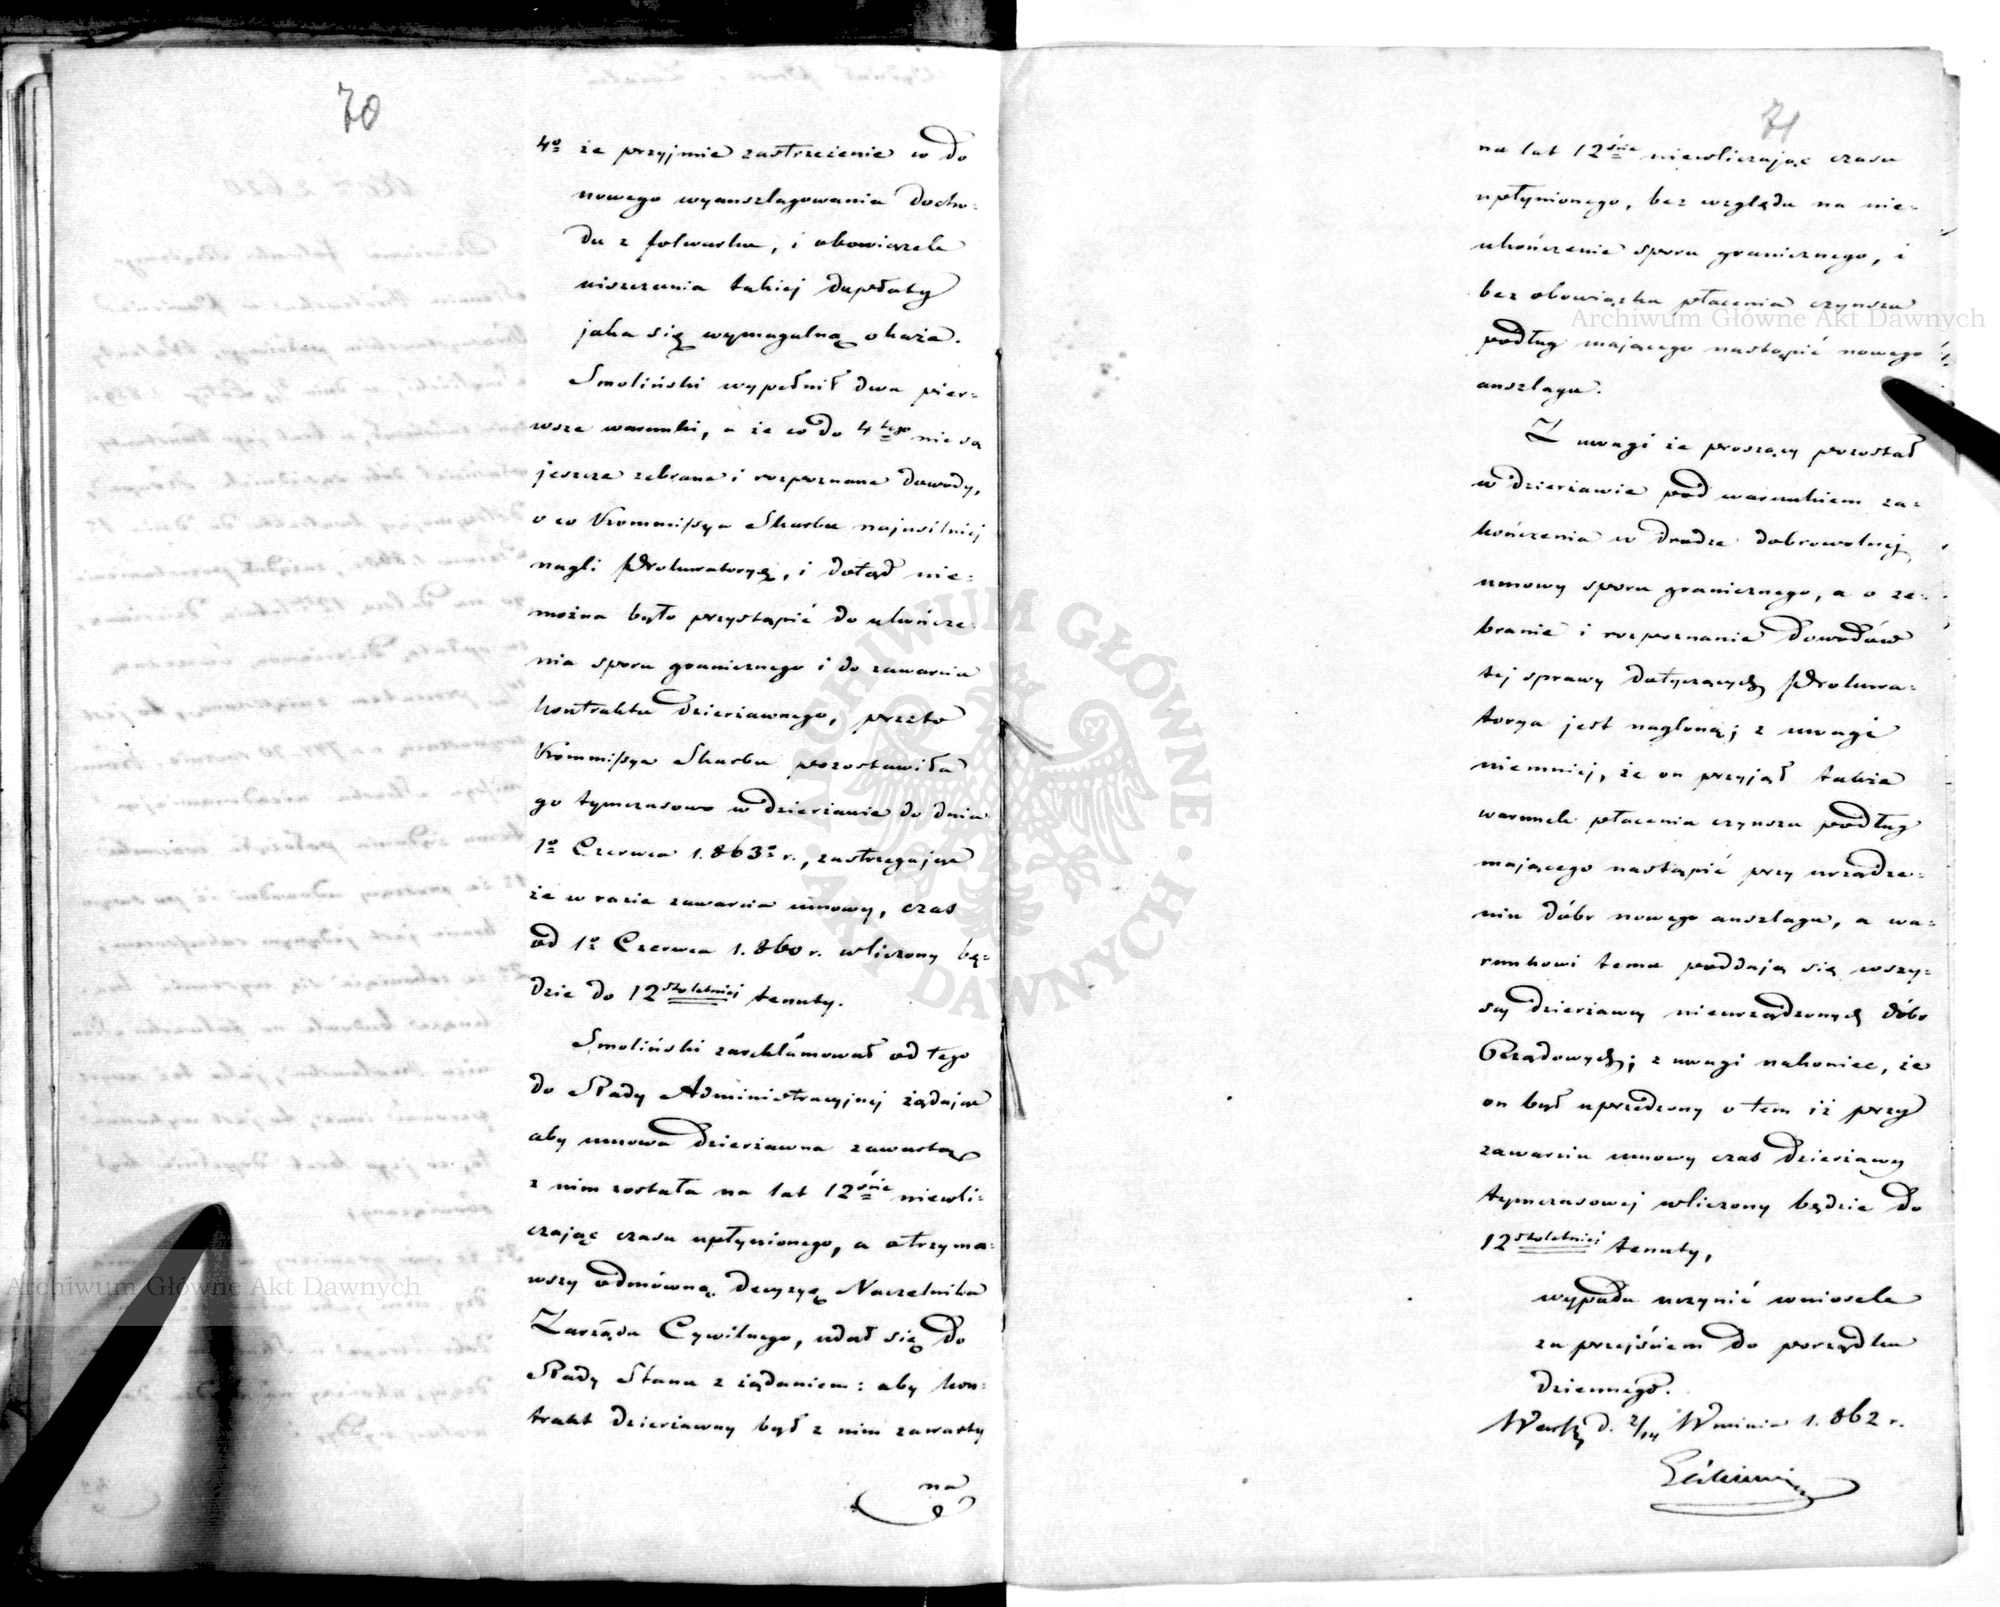 70
4o że przyjmie zastrzeżenie co do
nowego wyanszlagowania docho-
du z folwarku, i obowiązek
uiszczania takiej dopłaty
jaka się wymagalną okaże.
Smoliński wypełnił dwa pier-
wsze warunki, a że co do 4tego nie są
jeszcze zebrane i rozpoznane dowody,
o co Kommissya Skarbu najusilniej
nagli Prokuratoryą, i dotąd nie-
można było przystąpić do ukończe-
nia sporu granicznego i do zawarcia
kontraktu dzierżawnego, przeto
Kommissya Skarbu pozostawiła
go tymczasowo w dzierżawie do dnia
1o Czerwca 1.863o r., zastrzegając
że w razie zawarcia umowy, czas
od 1o Czerwca 1.860 r. wliczony bę-
dzie do 12stoletniej tenuty.
Smoliński zareklamował od tego
do Rady Administracyjnej żądając
aby umowa dzierżawna zawartą
z nim została na lat 12ście niewli-
czając czasu upłynionego, a otrzyma-
wszy odmówną decyzyę Naczelnika
Zarządu Cywilnego, udał się do
Rady Stanu z żądaniem: aby kon-
trakt dzierżawny był z nim zawarty
na
71
na lat 12ście niewliczając czasu
upłynionego, bez względu na nie-
ukończenie sporu granicznego, i
bez obowiązku płacenia czynszu
podług mającego nastąpić nowego
anszlagu.
Z uwagi że proszący pozostał
w dzierżawie pod warunkiem za-
kończenia w drodze dobrowolnej
umowy sporu granicznego, a o ze-
branie i rozpoznanie dowodów
tej sprawy dotyczących Prokura-
torya jest nagloną; z uwagi
niemniej, że on przyjął także
warunek płacenia czynszu podług
mającego nastąpić przy urządze-
niu dóbr nowego anszlagu, a wa-
runkowi temu poddają się wszy-
scy dzierżawcy nieurządzonych dóbr
Rządowych; z uwagi nakoniec, że
on był uprzedzony o tem iż przy
zawarciu umowy czas dzierżawy
tymczasowej wliczony będzie do
12stoletniej tenuty,
wypada uczynić wniosek
za przejściem do porządku
dziennego.
Warsz. d. 2/14 Winnia 1.862 r.
Archiwum Główne Akt Dawnych
Archiwum Główne Akt Dawnych
ARCHIWUM GŁÓWNE · AKT DAWNYCH ·